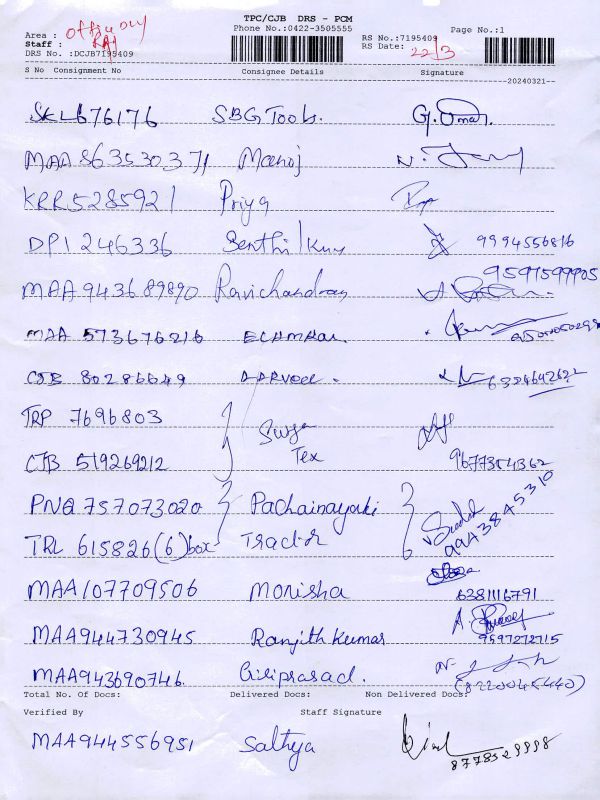 TPC/CJB DRS - PCM
Phone No.:0422-3505555
Page No.:1
Area :
Staff : RAJ
DRS No. :DCJB7195409
RS No.:7195409
RS Date: 22/3
S No Consignment No Consignee Details Signature
20240321
SKL676176 SBG Tools.
MAA 863530371 Manoj
KRR5285921 Priya
DPI 246336 Senthil 9994556816
MAA943689890 Ravichandran 9597599905
MAA 573676216
CJB 80286649 6324642622
TRP 7696803
CJB 519269212 Surya Tex 9677354362
PNQ 757073020 Pachainayaki
TRL 615826(6)box Tractor 9943845310
MAA107709506 Monisha 6381116791
MAA944730945 Ranjith Kumar 9597272715
MAA943690746. Giriprasad. (8220045440)
Total No. Of Docs: Delivered Docs: Non Delivered Docs:
Verified By Staff Signature
MAA944556951 Sathya 8778529998